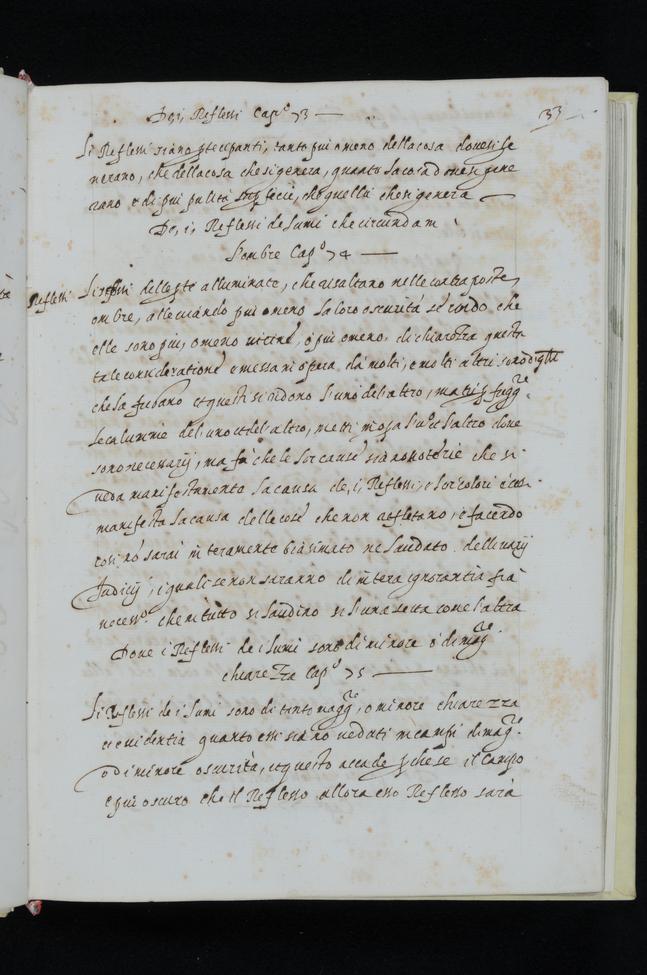 De, i, Reflessi Cap.º 73
33
Li Reflessi siano ptecipanti, tanto piu o meno della cosa doue si ge
nerano, che della cosa che si genera, quanto la cosa doue si gene
rano è di piu pulita superfecie, che quella che si genera
De, i, Reflessi de lumi che circundam
l'ombre Cap.º 74
Reflessi
Li delle pte alluminate, che risaltano nelle contraposte
ombre, alleuiando piu o meno la loro oscurità secondo che
elle sono piu, o meno uicine, o piu o meno di chiarezza questa
tale consideratione è messa in opera da molti, e molti altri sono
che la fugano et questi si ridono l'uno del altro, ma tu p fugg.
le calumnie del uno et del altro, metti in opa l'uº et l'altro doue
sono necessarij, ma fà che le lor cause siano note cioè che si
ueda manifestamente la causa de, i, Reflessi, e lor colori è cosi
manifesta la causa delle cose che non reflettano, è facendo
cosi nõ sarai interamente biasimato ne laudato delli uarij
Judicij, i quali se non saranno di intera ignorantia fia
necessº. che in tutto si laudino si l'una setta come l'altra
Doue i Reflessi de i lumi sono di minore o di magg.re
chiarezza Cap.º 75
Li Reflessi de i lumi sono di tanto magg.re, o minore chiarezza
et euidentia quanto essi siano ueduti in campi di mag.re
o di minore oscurità, et questo accade p che se il campo
è piu oscuro che il Reflesso allora esso Reflesso sarà